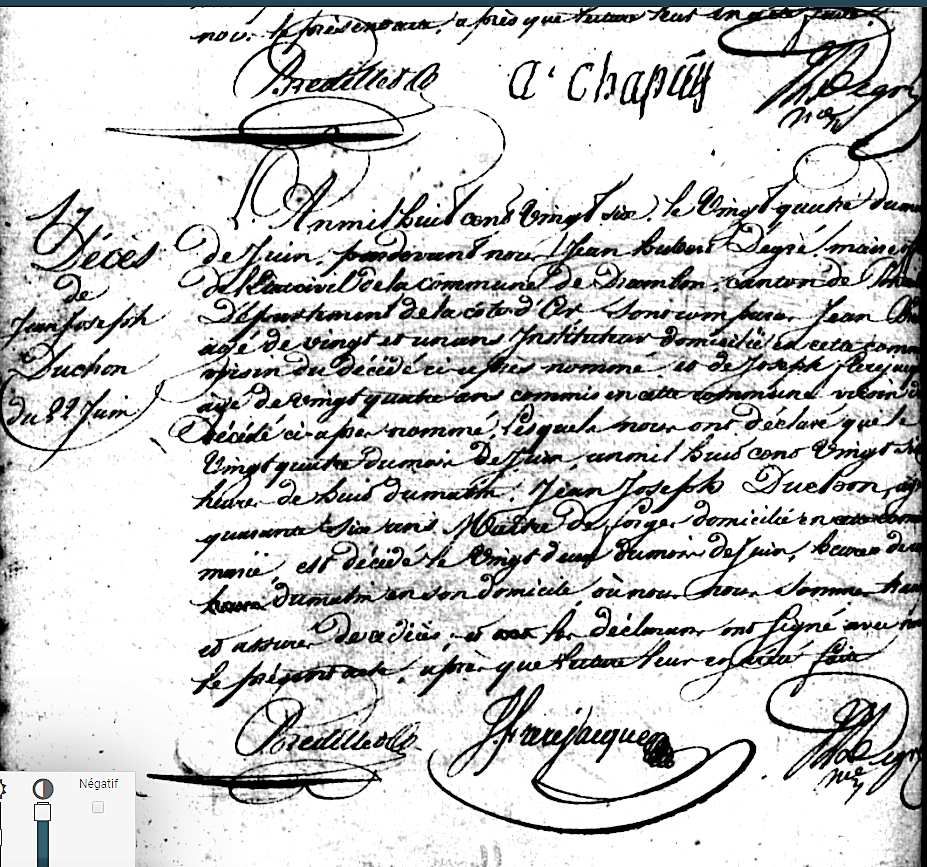 nous le présent acte, après que lecture leur en a été faite.
Bredillet
a. Chapuis
JH Degré
17
Décès
de
Jean Joseph
Duchon
du 22 Juin
L'An mil huit cent Vingt six, le Vingt quatre du mois
de Juin, pardevant nous Jean hubert Dégré, maire
de l'Etat civil de la commune de Drambon, canton de
Département de la côte d'Or, sont comparus Jean
agé de vingt et un ans Instituteur domicilié en cette
voisin du décédé ci après nommé, et de Joseph
agé de vingt quatre ans commis en cette commune voisin
décédé ci après nommé, lesquels nous ont déclaré que le
Vingt quatre du mois De Juin, an mil huit cent Vingt six
heure de huit du matin, Jean Joseph Duchon,
quarante six ans, Maître de forges domicilié en
est décédé le Vingt deux du mois de Juin, heures
du matin en son domicile où nous nous sommes
et assurés de ce décès et les déclarans ont signé avec
le présent acte, après que lecture leur en a été faite
Bredillet
J. Frerejacques
JH Degré
Négatif